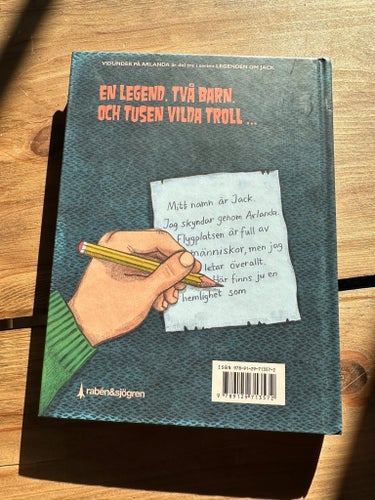 VIDUNDER PÅ ARLANDA är del tre i serien LEGENDEN OM JACK
EN LEGEND. TVÅ BARN.
OCH TUSEN VILDA TROLL ...
Mitt namn är Jack.
Jag skyndar genom Arlanda.
Flygplatsen är full av
människor, men jag
letar överallt.
Här finns ju en
hemlighet som
ISBN 978-91-29-71357-2
9 789129 713572
rabén&sjögren